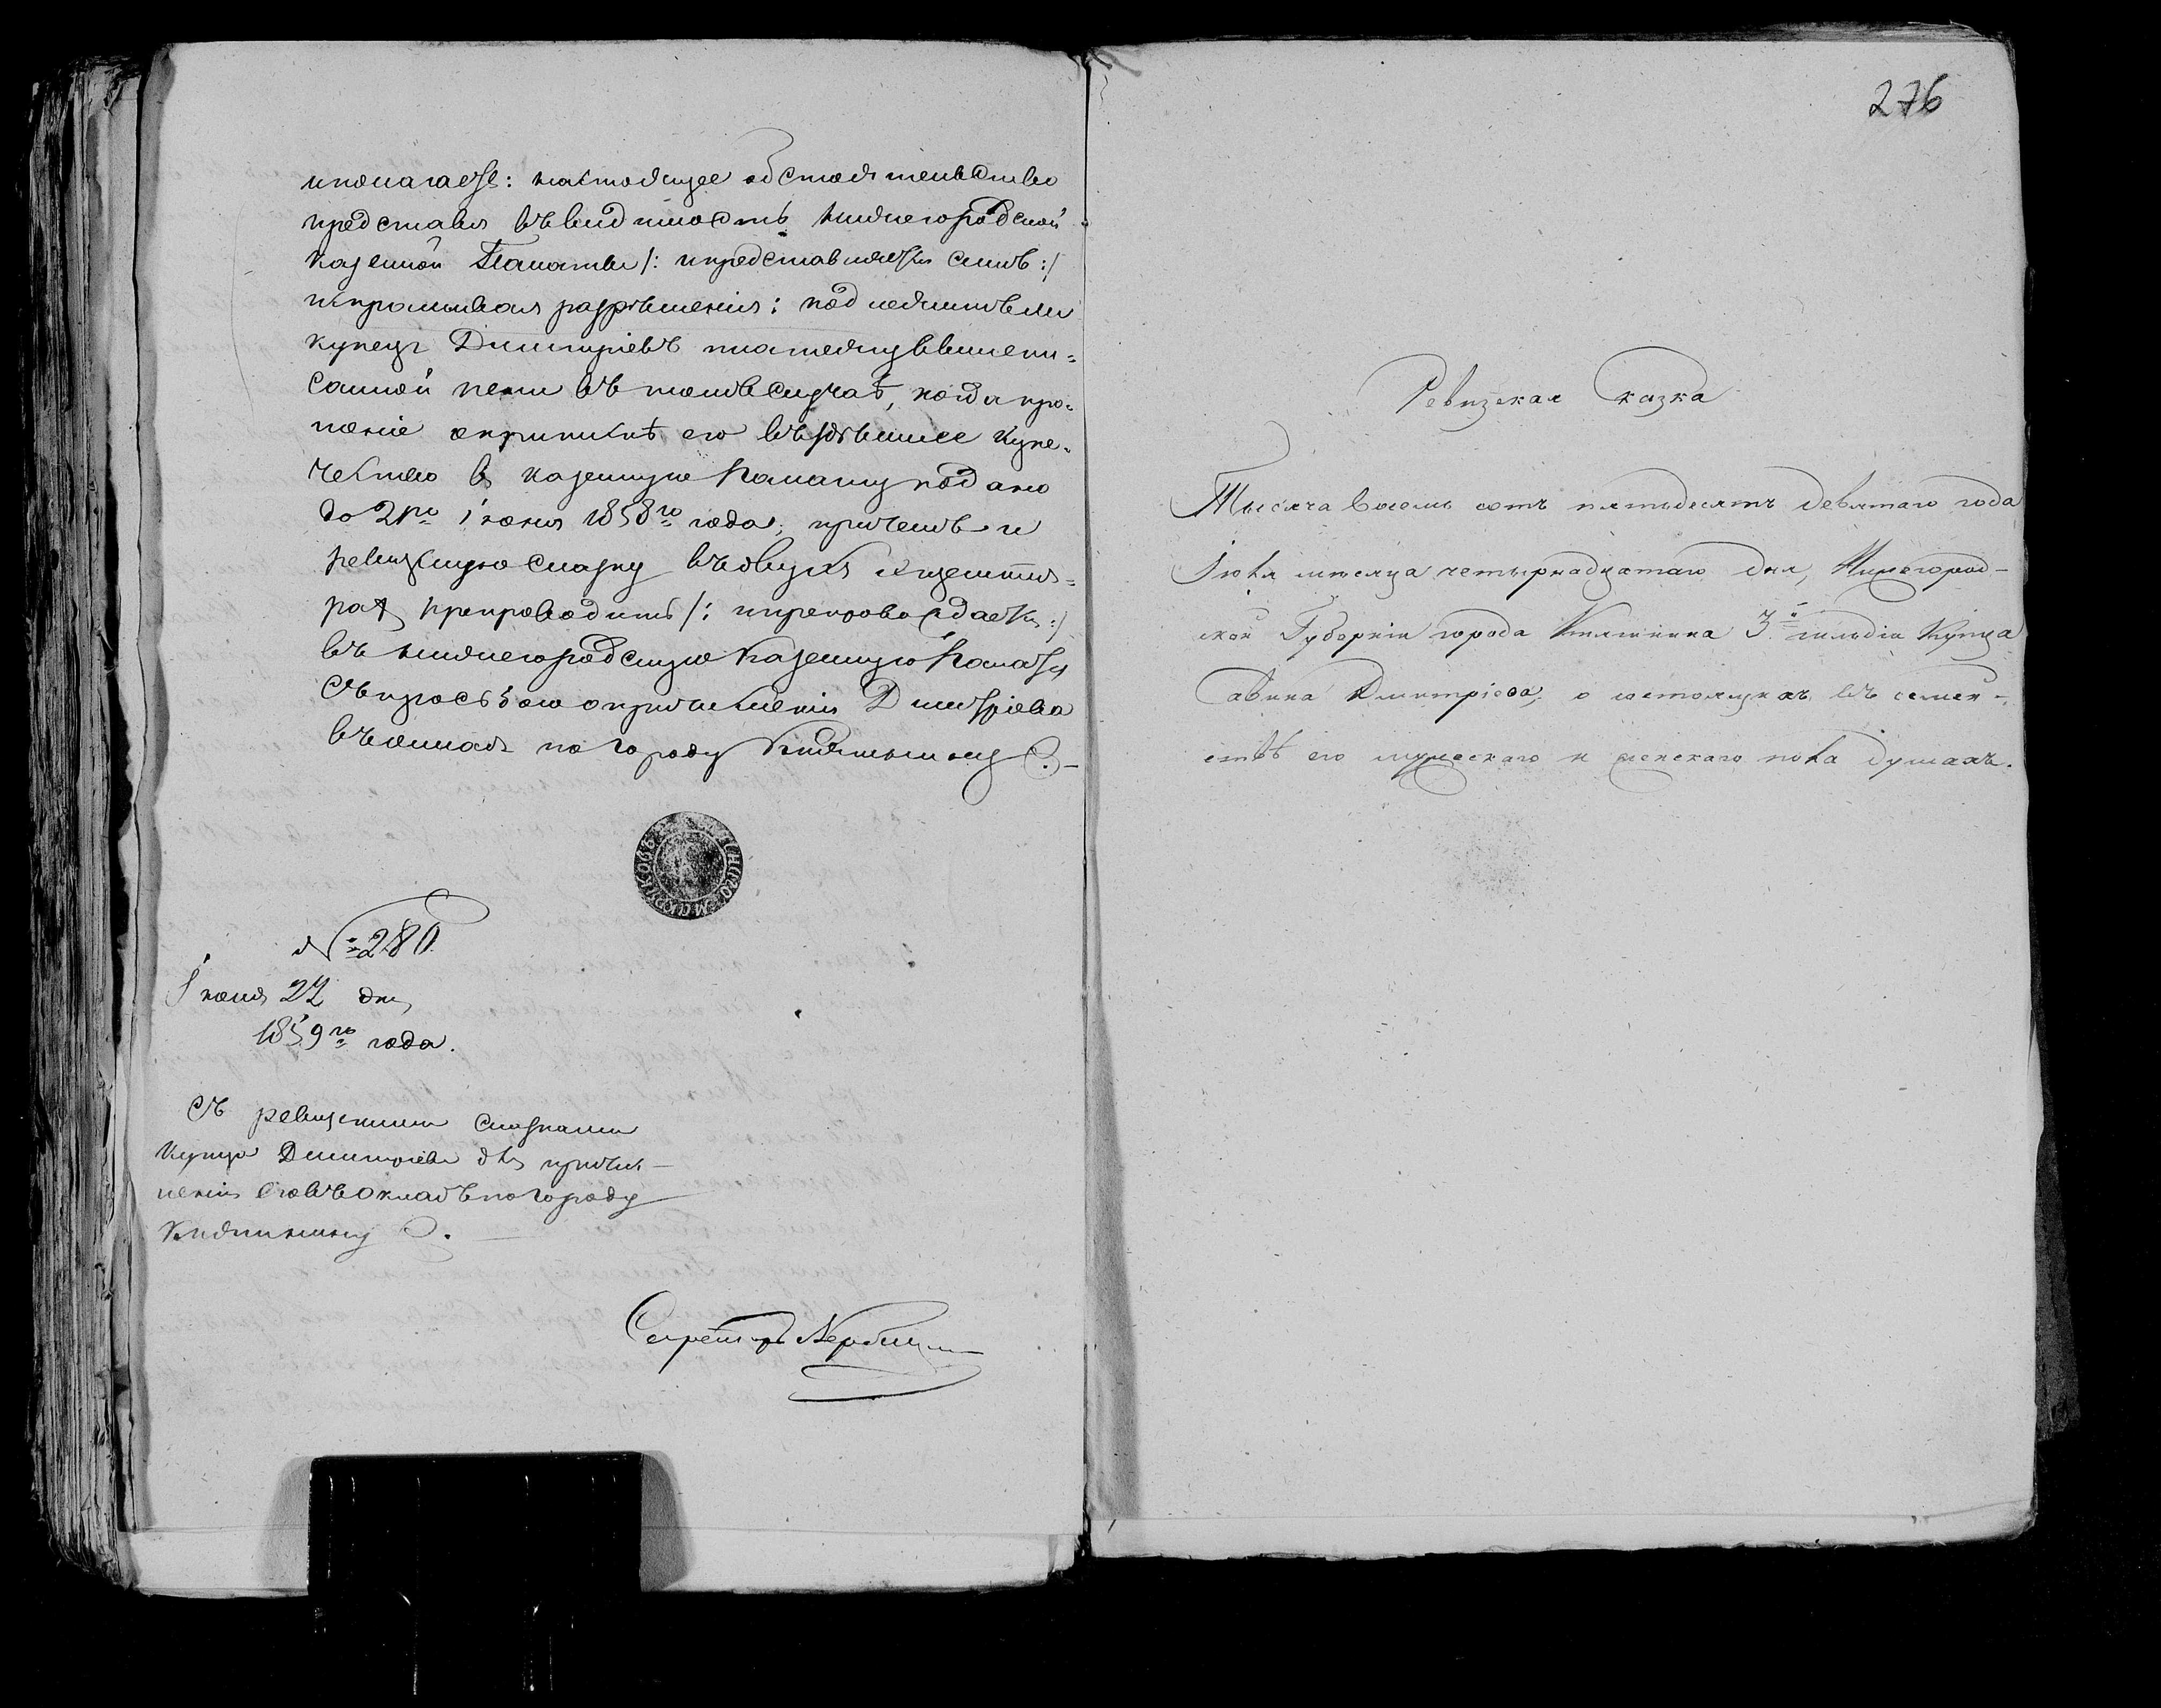 и полагаетъ: настоящее обстоятельство
представя въ видимость Нижегородской
казенной Палаты /: и представляетъ симъ :/
испрашивая разрѣшенія: подлежитъ ли
купецъ Дмитріевъ платежу вышепи=
санной пени въ томъ случаѣ, когда про=
шеніе о припискѣ его въ здѣшнее купе=
чество въ Казенную Палату подано
до 21го Іюня 1858го года; причемъ и
ревизскую сказку въ двухъ экземпля=
рахъ препроводить /: и препровождаетъ :/
въ Нижегородскую Казенную Палату
съ прозьбою о причисленіи Дмитріева
въ окладъ по городу Княгинину
№ 280
Іюня 27 дня
1859го года.
Съ ревизскими сказками
купца Дмитріева для причис-
ленія его въ окладъ по городу
Княгинину
Секретарь
276
Ревизская сказка
Тысяча восемь сотъ пятьдесятъ девятаго года
Іюля мѣсяца четырнадцатаго дня, Нижегород-
ской Губерніи города Княгинина 3й гильдіи Купца
Савина Дмитріева, о состоящихъ въ семей-
ствѣ его мужескаго и женскаго пола душахъ.